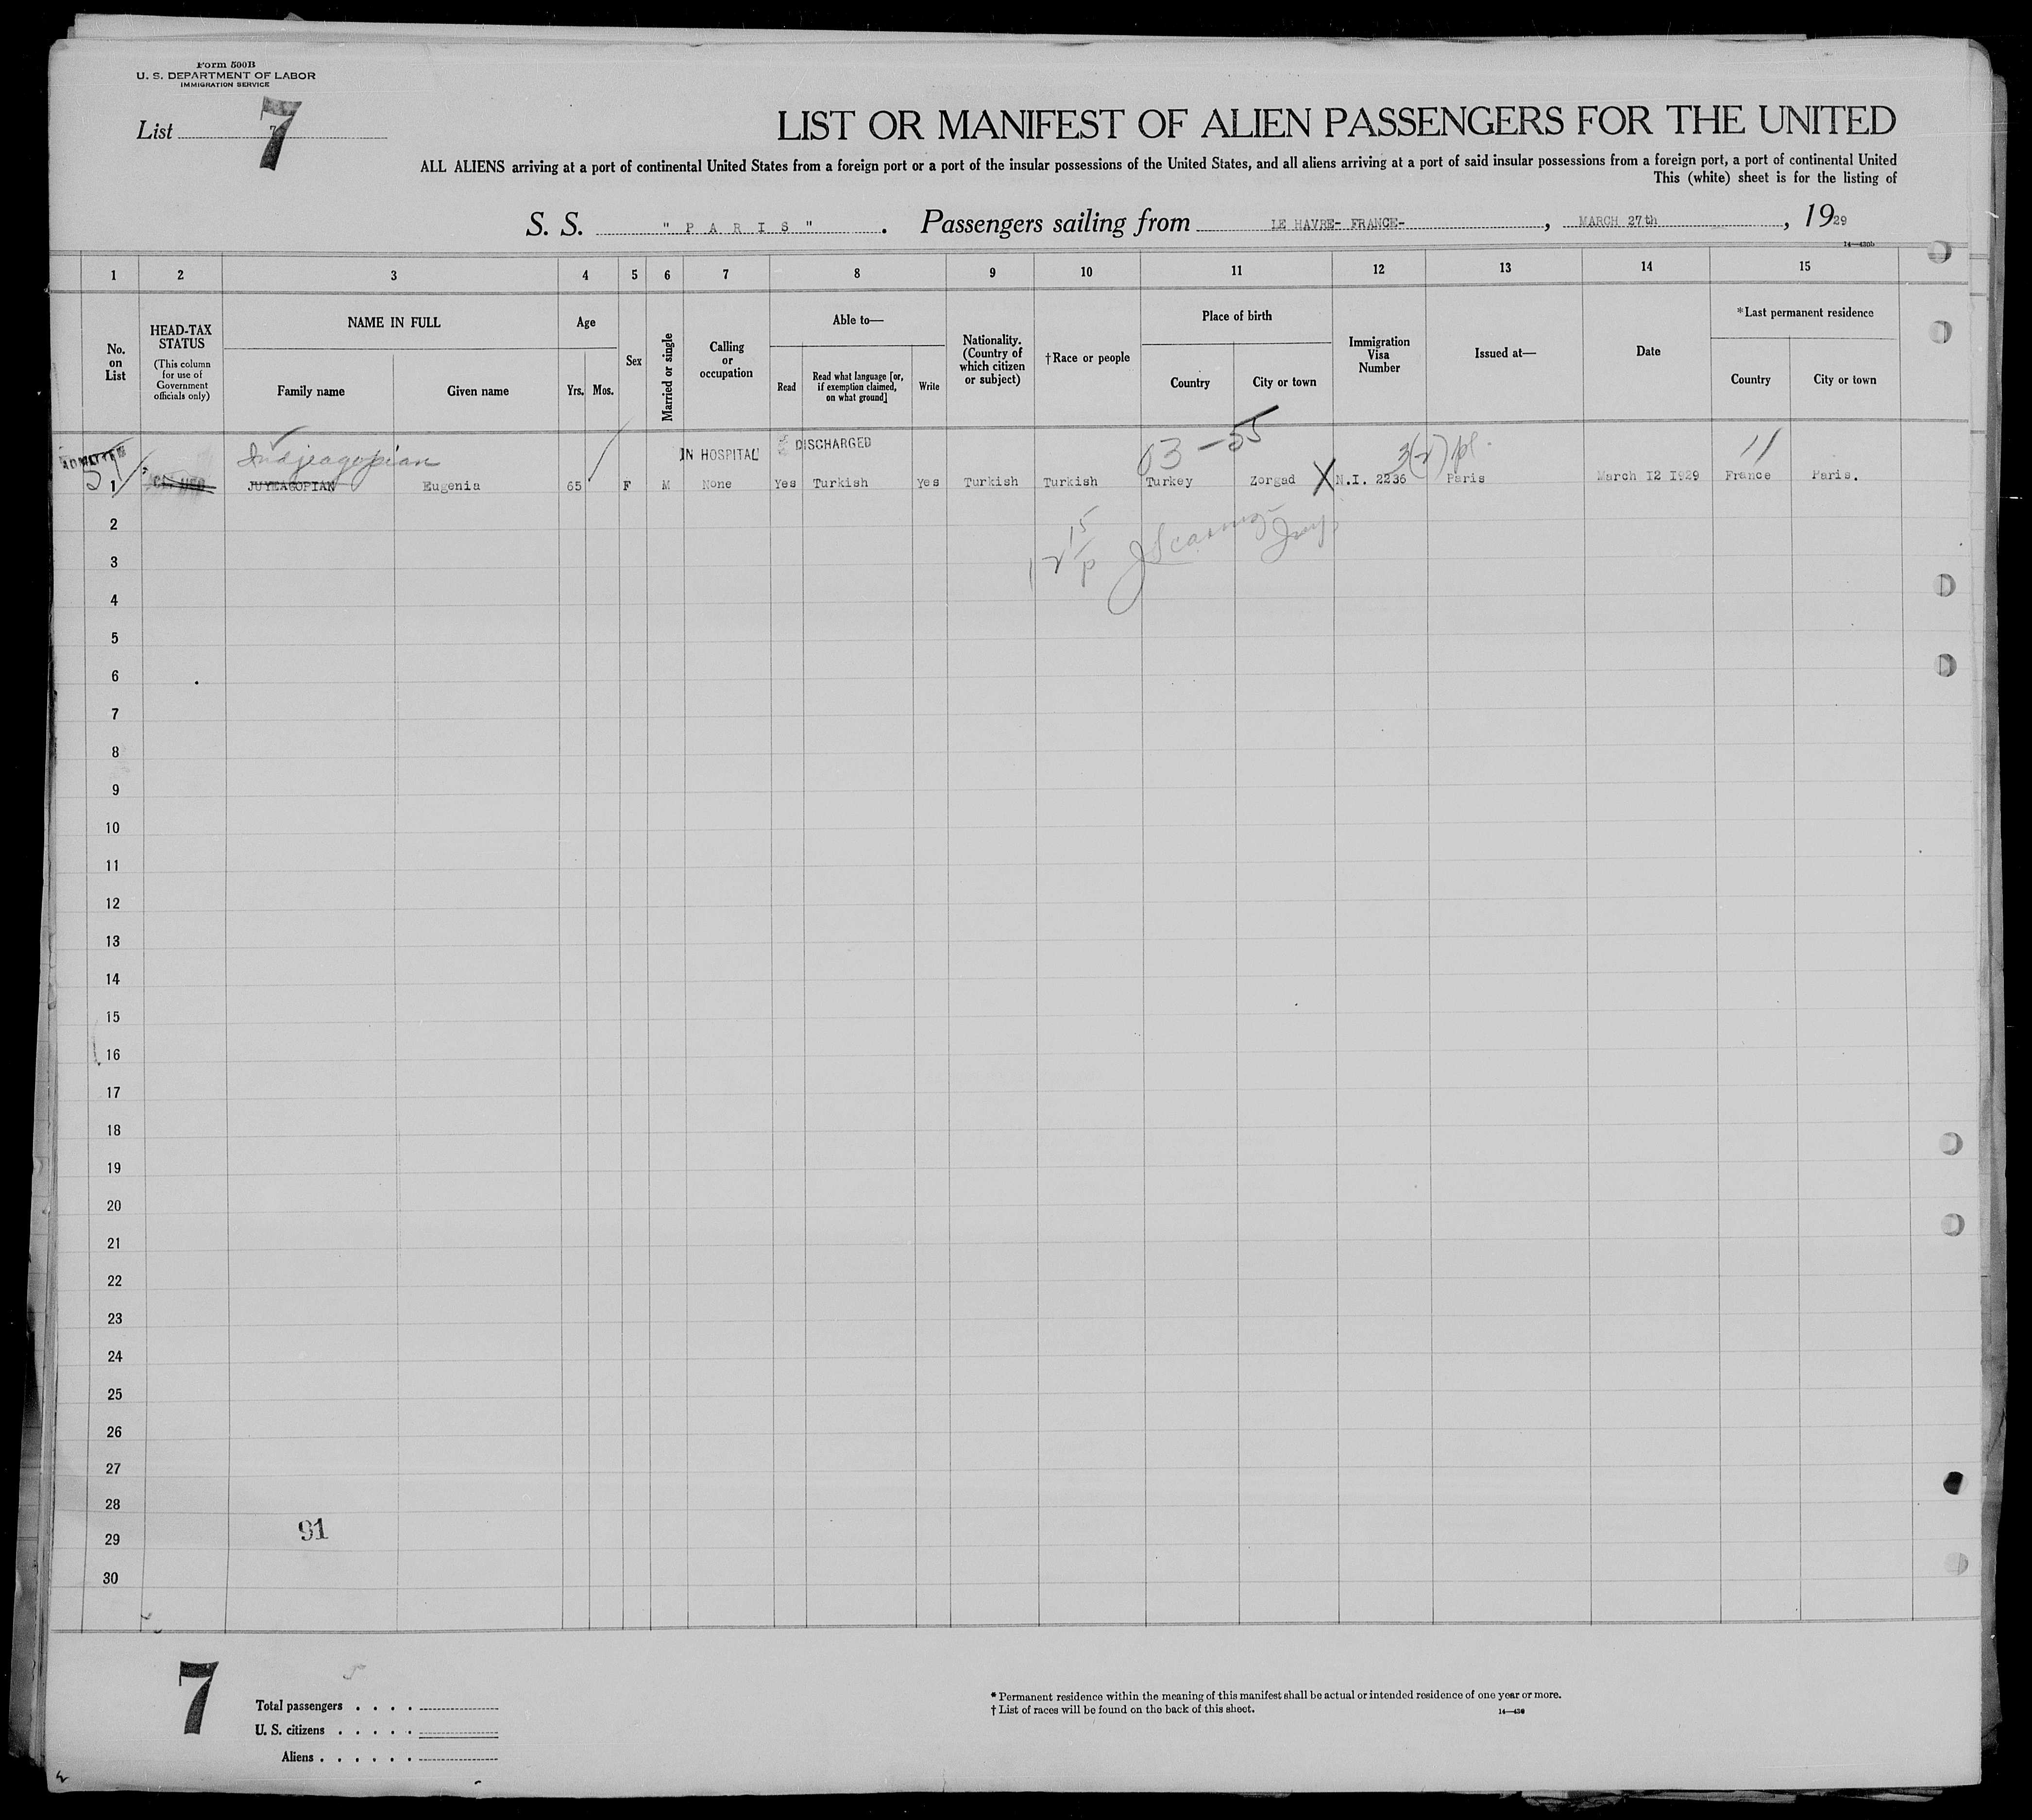 Form 500B
U. S. DEPARTMENT OF LABOR
IMMIGRATION SERVICE
List 7
7
LIST OR MANIFEST OF ALIEN PASSENGERS FOR THE UNITED
ALL ALIENS arriving at a port of continental United States from a foreign port or a port of the insular possessions of the United States, and all aliens arriving at a port of said insular possessions from a foreign port, a port of continental United
This (white) sheet is for the listing of
S. S. " P A R I S " . Passengers sailing from LE HAVRE- FRANCE- , MARCH 27th , 1929
14—430b
1 2 3 4 5 6 7 8 9 10 11 12 13 14 15
No. on List
HEAD-TAX STATUS
(This column for use of Government officials only)
NAME IN FULL
Family name
Given name
Age
Yrs. Mos.
Sex
Married or single
Calling or occupation
Able to—
Read
Read what language [or, if exemption claimed, on what ground]
Write
Nationality. (Country of which citizen or subject)
†Race or people
Place of birth
Country
City or town
Immigration Visa Number
Issued at—
Date
*Last permanent residence
Country
City or town
ADMITTED
Indjeagopian IN HOSPITAL DISCHARGED 03 - 55 3(2) pl. 11
1 JUYEAGOPIAN Eugenia 65 F M None Yes Turkish Yes Turkish Turkish Turkey Zorgad X N.I. 2236 Paris March 12 1929 France Paris.
2
3
4
5
6
7
8
9
10
11
12
13
14
15
16
17
18
19
20
21
22
23
24
25
26
27
28
91
29
30
7
Total passengers . . . .
U. S. citizens . . . . .
Aliens . . . . . .
* Permanent residence within the meaning of this manifest shall be actual or intended residence of one year or more.
† List of races will be found on the back of this sheet.
14—430